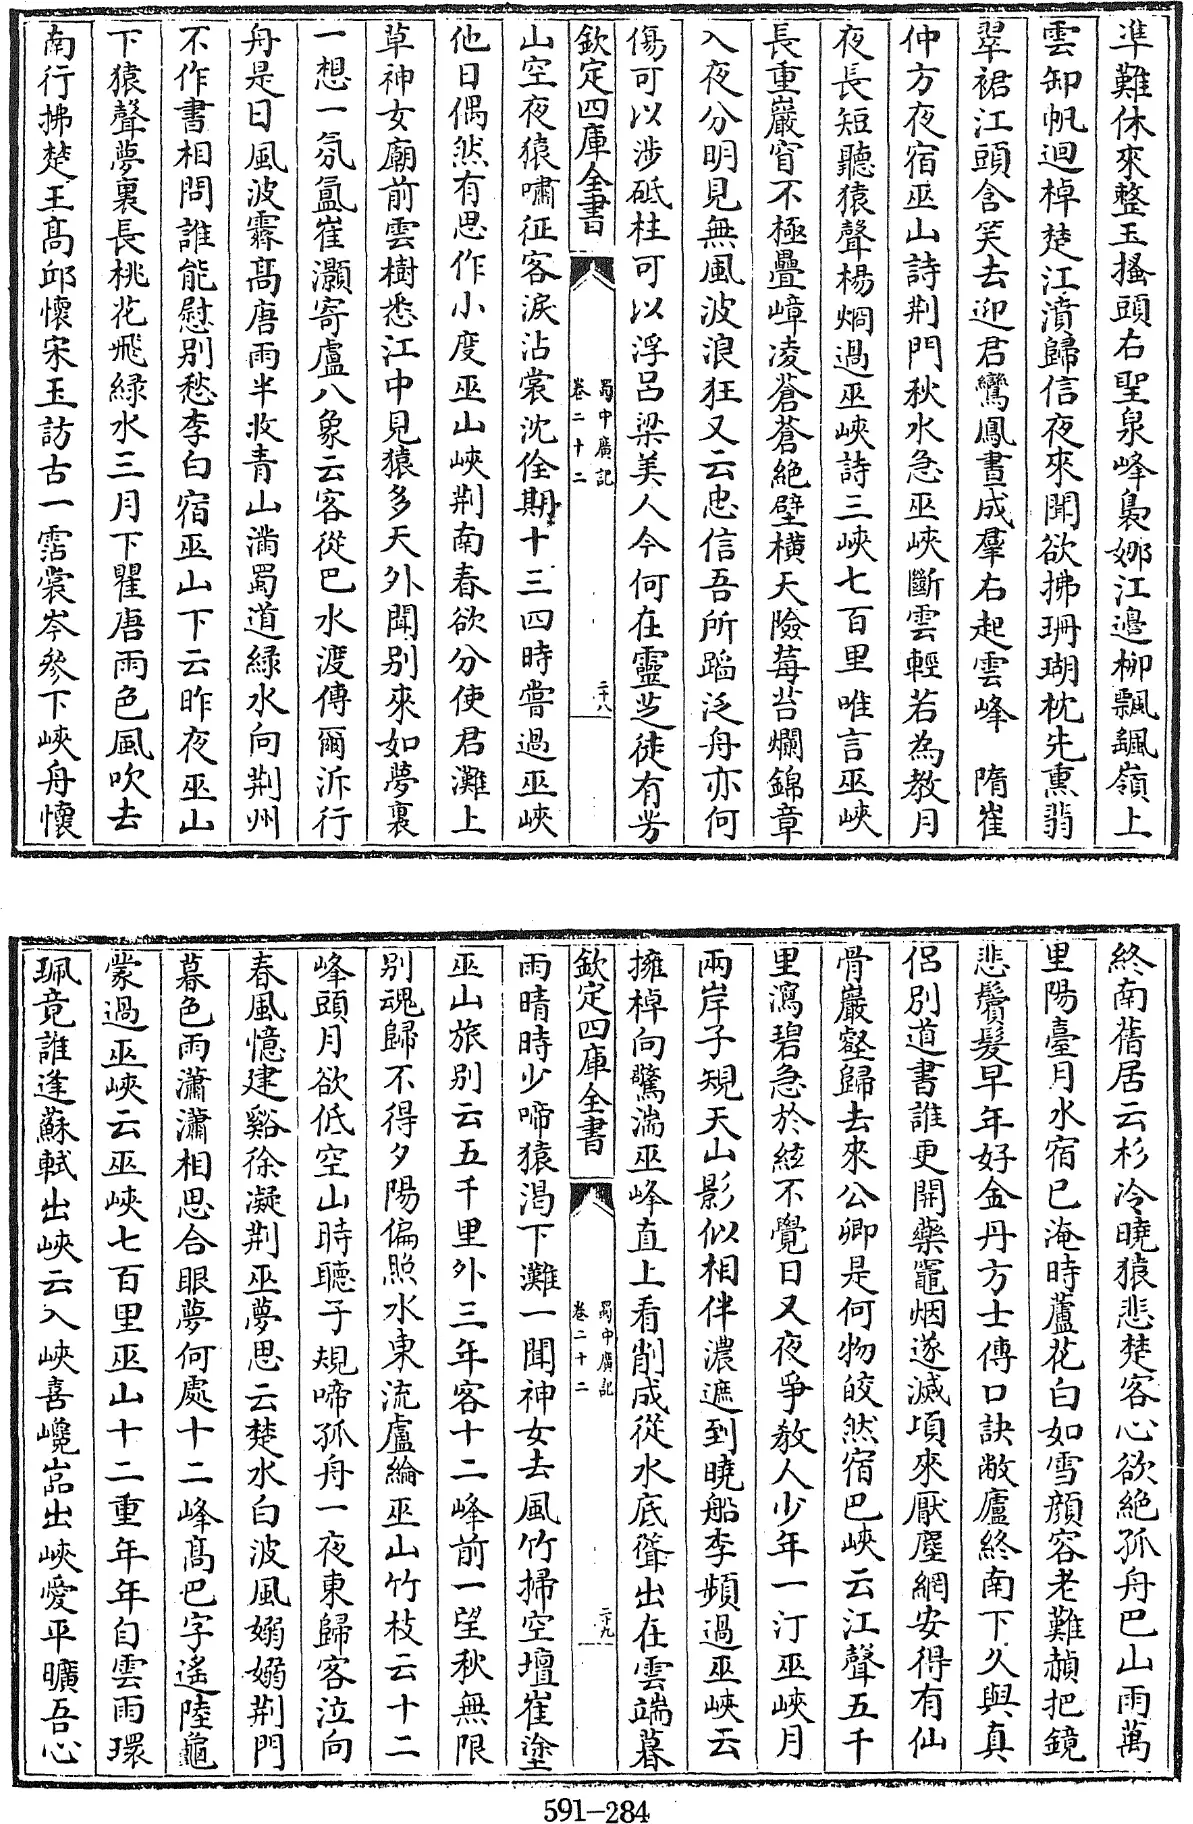 準難休來整玉搔頭右聖泉峰裊娜江邊柳飄颻嶺上
雲卸帆迴棹楚江濆歸信夜來聞欲拂珊瑚枕先熏翡
翠裙江頭含笑去迎君鸞鳳書成羣右起雲峰　隋崔
仲方夜宿巫山詩荆門秋水急巫峽斷雲輕若為教月
夜長短聽猿聲楊烱過巫峽詩三峽七百里唯言巫峽
長重巖窅不極疊嶂凌蒼蒼絶壁横天險莓苔爛錦章
入夜分明見無風波浪狂又云忠信吾所蹈泛舟亦何
傷可以涉砥柱可以浮呂梁美人今何在靈芝徒有芳
欽定四庫全書
蜀中廣記
卷二十二
二十八
山空夜猿嘯征客淚沾裳沈佺期十三四時嘗過巫峽
他日偶然有思作小度巫山峽荆南春欲分使君灘上
草神女廟前雲樹悉江中見猿多天外聞别來如夢裏
一想一氛氲崔灝寄盧八象云客從巴水渡傳爾泝行
舟是日風波霽髙唐雨半收青山滿蜀道緑水向荆州
不作書相問誰能慰别愁李白宿巫山下云昨夜巫山
下猿聲夢裏長桃花飛緑水三月下瞿唐雨色風吹去
南行拂楚王髙邱懷宋玉訪古一霑裳岑參下峽舟懷
終南舊居云杉冷曉猿悲楚客心欲絶孤舟巴山雨萬
里陽臺月水宿已淹時蘆花白如雪顔容老難赬把鏡
悲鬢髮早年好金丹方士傳口訣敝廬終南下久與真
侣别道書誰更開藥竈烟遂滅項來厭塵網安得有仙
骨巖壑歸去來公卿是何物皎然宿巴峽云江聲五千
里瀉碧急於絃不覺日又夜爭教人少年一汀巫峽月
兩岸子規天山影似相伴濃遮到曉船李頻過巫峽云
擁棹向驚湍巫峰直上看削成從水底聳出在雲端暮
欽定四庫全書
蜀中廣記
卷二十二
二十九
雨晴時少啼猿渴下灘一聞神女去風竹掃空壇崔塗
巫山旅别云五千里外三年客十二峰前一望秋無限
别魂歸不得夕陽偏照水東流盧綸巫山竹枝云十二
峰頭月欲低空山時聽子規啼孤舟一夜東歸客泣向
春風憶建谿徐凝荆巫夢思云楚水白波風嫋嫋荆門
暮色雨瀟瀟相思合眼夢何處十二峰髙巴字遙陸龜
蒙過巫峽云巫峽七百里巫山十二重年年自雲雨環
珮竟誰逢蘇軾出峽云入峽喜巉嵓出峽愛平曠吾心
591-284